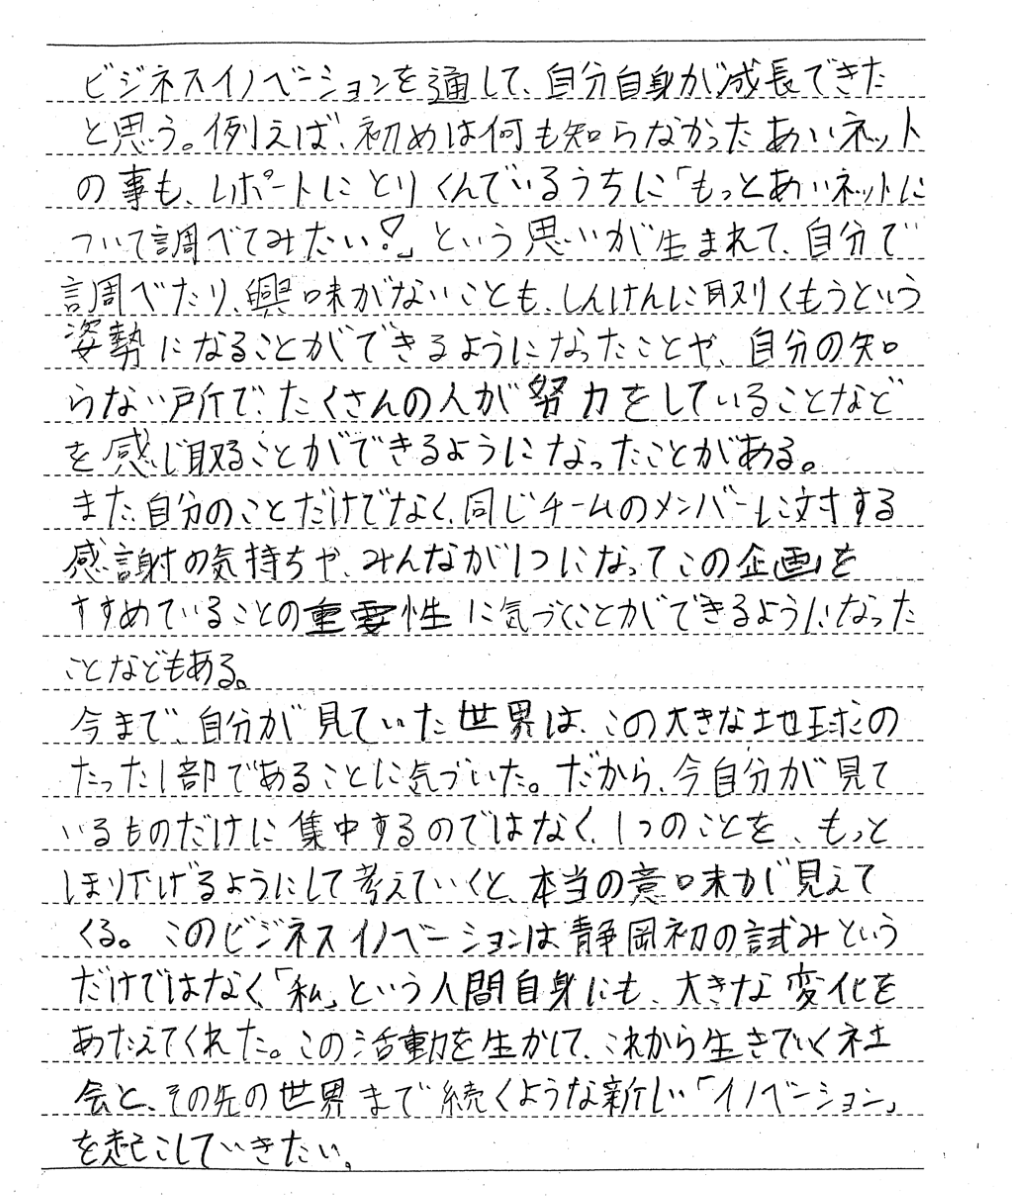 ビジネスイノベーションを通して、自分自身が成長できた
と思う。例えば、初めは何も知らなかったあいネット
の事も、レポートにとりくんでいるうちに「もっとあいネットに
ついて調べてみたい!」という思いが生まれて、自分で
調べたり、興味がないことも、しんけんに取りくもうという
姿勢になることができるようになったことや、自分の知
らない所で、たくさんの人が努力をしていることなど
を感じ取ることができるようになったことがある。
また、自分のことだけでなく、同じチームのメンバーに対する
感謝の気持ちや、みんなが1つになってこの企画を
すすめていることの重要性に気づくことができるようになった
ことなどもある。
今まで、自分が見ていた世界は、この大きな地球の
たった1部であることに気づいた。だから、今自分が見て
いるものだけに集中するのではなく、1つのことを、もっと
ほり下げるようにして考えていくと、本当の意味が見えて
くる。このビジネスイノベーションは静岡初の試みという
だけではなく、「私」という人間自身にも、大きな変化を
あたえてくれた。この活動を生かして、これから生きていく社
会と、その先の世界まで続くような新しい「イノベーション」
を起こしていきたい。